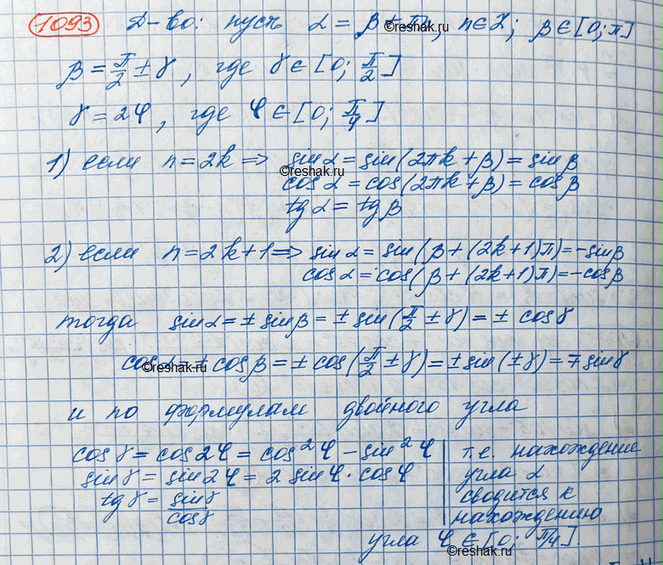 1093 Д-во: пусть α = β + πn, n∈Z; β∈[0; π]
β = π/2 ± γ, где γ∈[0; π/2]
©reshak.ru
γ = 2φ, где φ∈[0; π/4]
1) если n=2k ⇒ sinα = sin(2πk+β) = sinβ
©reshak.ru
cosα = cos(2πk+β) = cosβ
tgα = tgβ
2) если n=2k+1 ⇒ sinα = sin(β+(2k+1)π) = -sinβ
cosα = cos(β+(2k+1)π) = -cosβ
тогда sinα = ± sinβ = ± sin(π/2 ± γ) = ± cosγ
cosα = ± cosβ = ± cos(π/2 ± γ) = ± sin(±γ) = ∓ sinγ
©reshak.ru
и по формулам двойного угла
cosγ = cos2φ = cos²φ - sin²φ
sinγ = sin2φ = 2 sinφ · cosφ
tgγ = sinγ/cosγ
т.е. нахождение
угла α
сводится к
нахождению
угла φ∈[0; π/4].
©reshak.ru